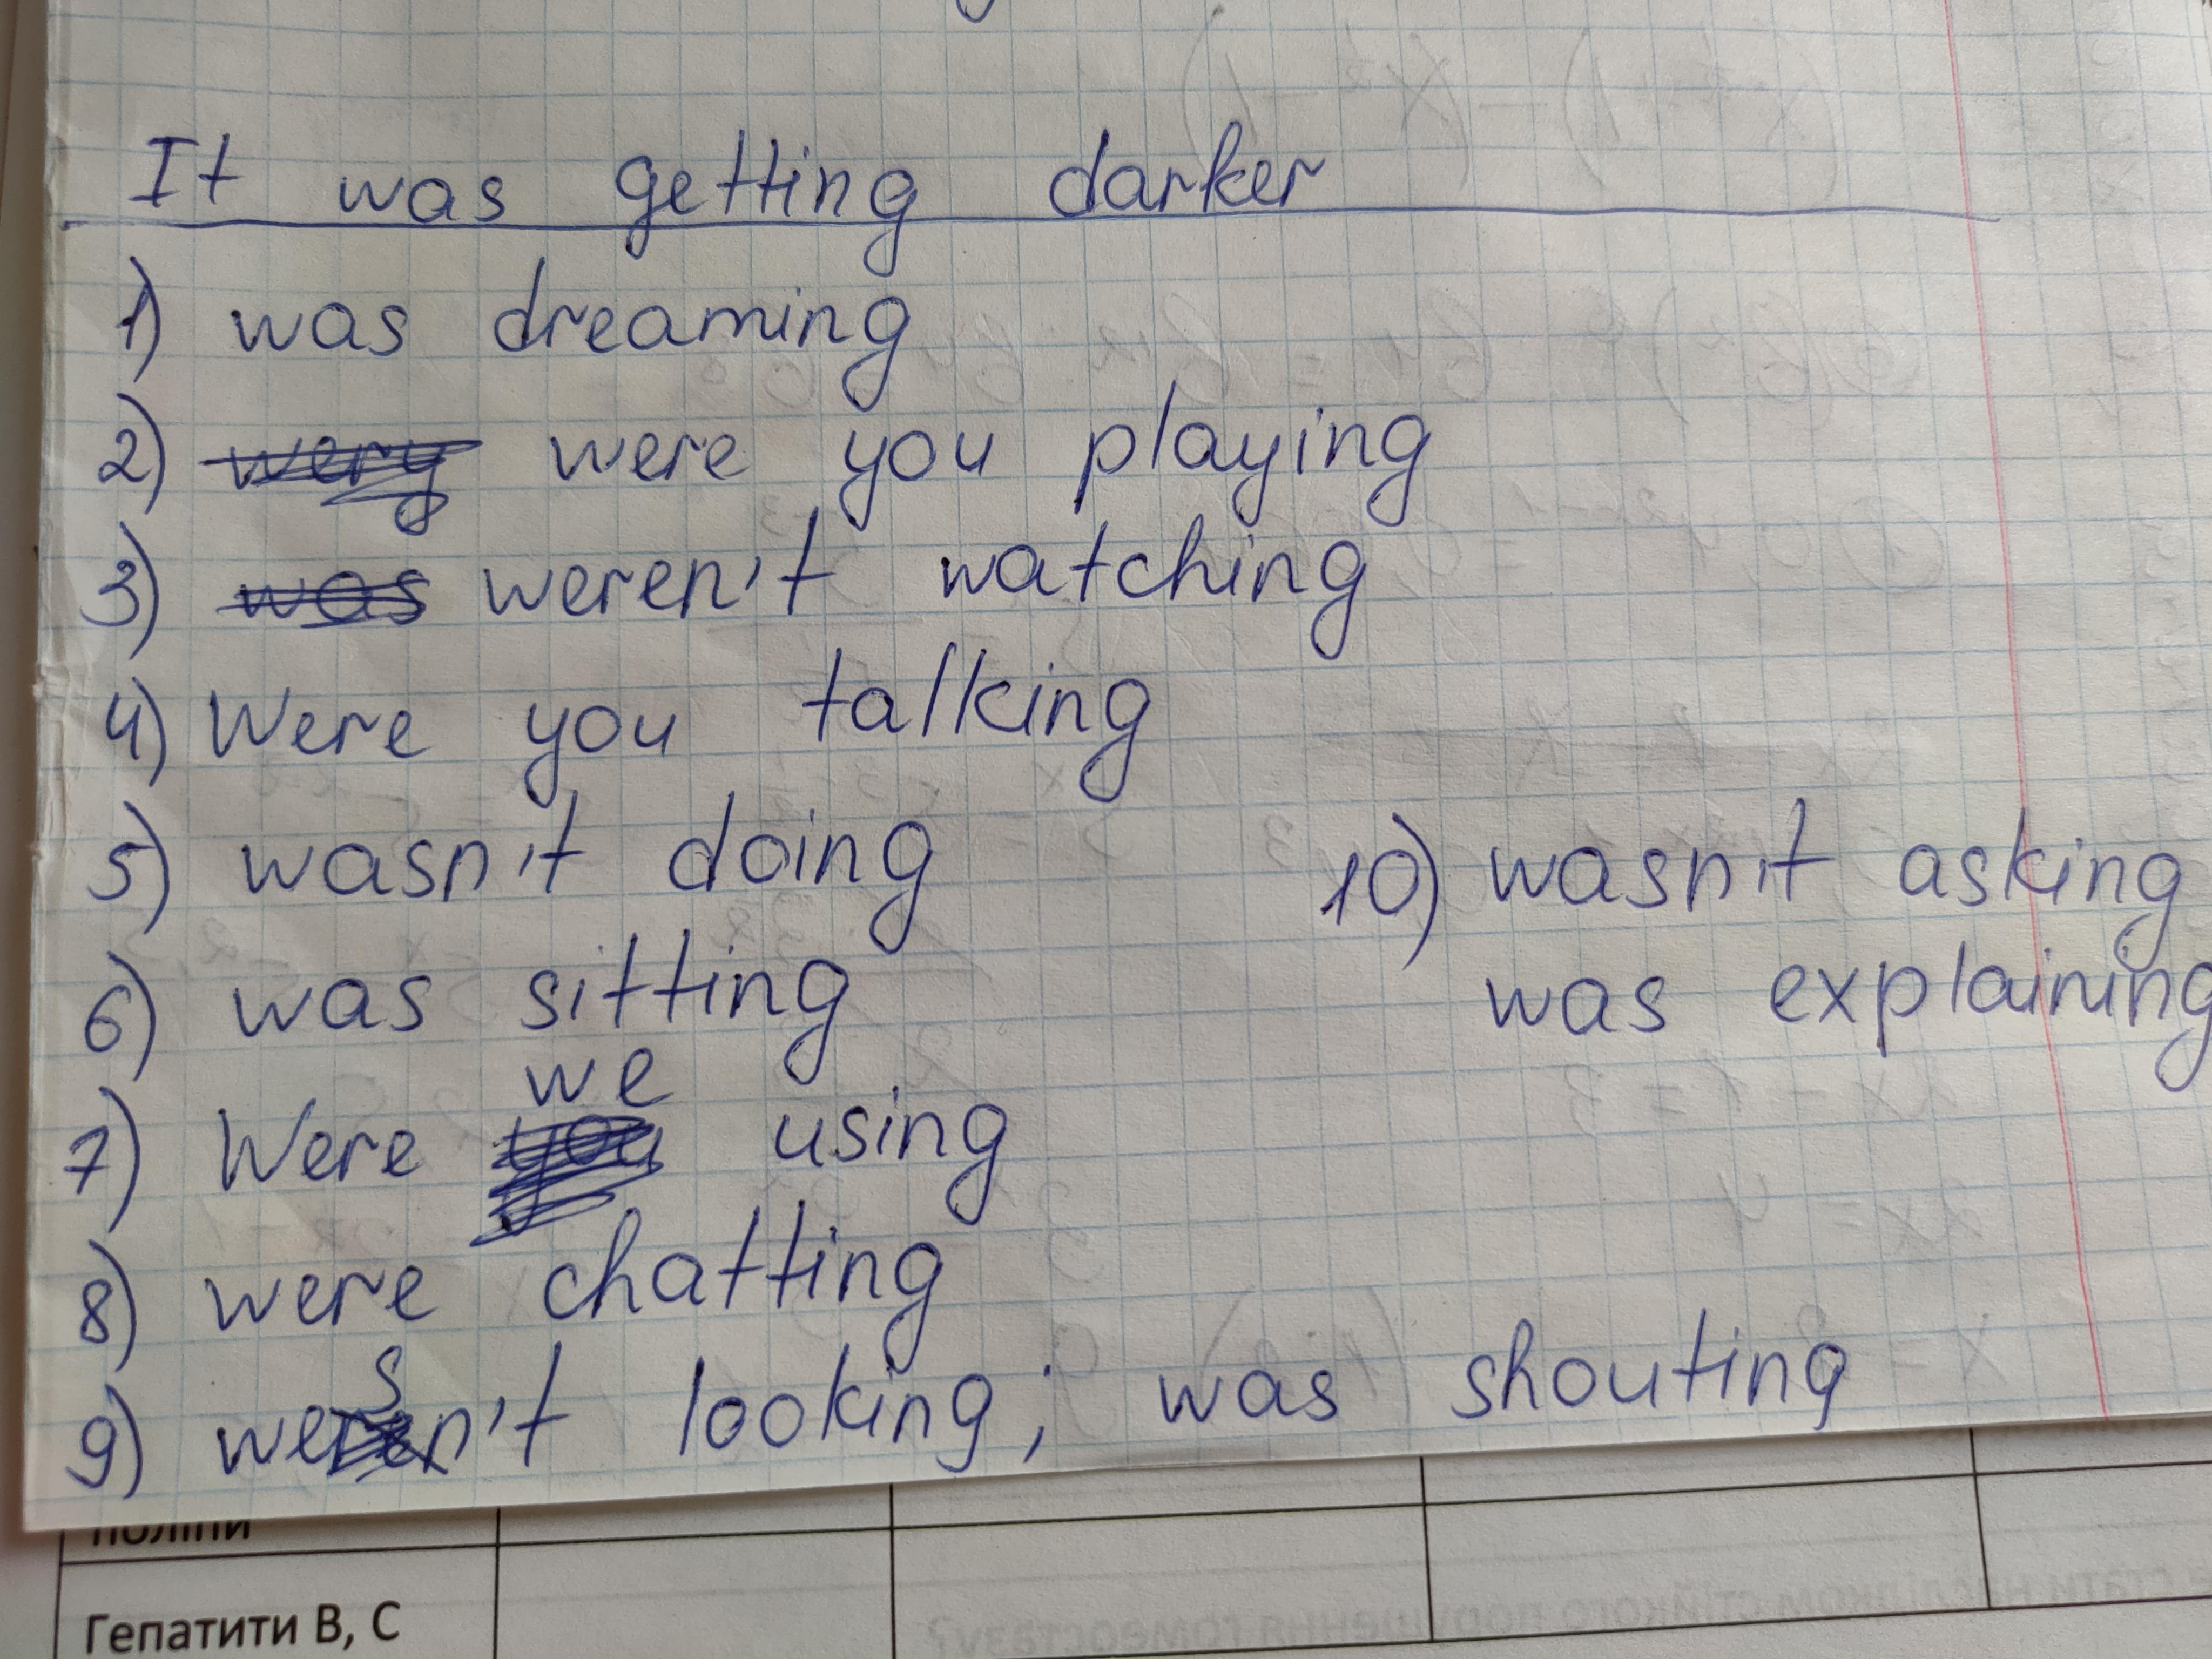 It was getting darker
1) was dreaming
2) wery were you playing
3) was weren't watching
4) Were you talking
5) wasn't doing
6) was sitting
7) Were you we using
8) were chatting
9) wesn't looking; was shouting
10) wasn't asking
was explaining
поліпи
Гепатити В, С